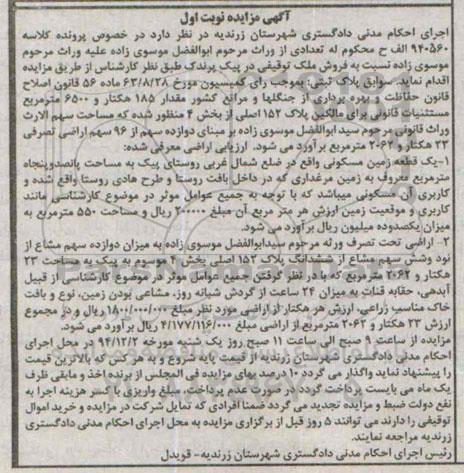 آگهی مزایده نوبت اول
اجرای احکام مدنی دادگستری شهرستان زرندیه در نظر دارد در خصوص پرونده کلاسه
۹۴۰۵۶۰ الف ح محکوم له تعدادی از وراث مرحوم ابوالفضل موسوی زاده علیه وراث مرحوم
موسوی زاده نسبت به فروش ملک توقیفی در پیک پرندک طبق نظر کارشناس از طریق مزایده
اقدام نماید. سوابق پلاک ثبتی: بموجب رای کمیسیون مورخ ۶۳/۸/۲۸ ماده ۵۶ قانون اصلاح
قانون حفاظت و بهره برداری از جنگلها و مراتع کشور مقدار ۱۸۵ هکتار و ۶۵۰۰ مترمربع
مستثنیات قانونی برای مالکین پلاک ۱۵۲ اصلی از بخش ۴ منظور شده که مساحت سهم الارث
وراث قانونی مرحوم سید ابوالفضل موسوی زاده بر مبنای دوازده سهم از ۹۶ سهم اراضی تصرفی
۲۳ هکتار و ۲۰۶۲ مترمربع برآورد می شود. ارزیابی اراضی معرفی شده:
۱-یک قطعه زمین مسکونی واقع در ضلع شمال غربی روستای پیک به مساحت پانصدوپنجاه
مترمربع معروف به زمین مرغداری که در داخل بافت روستا و طرح هادی روستا واقع شده و
کاربری آن مسکونی میباشد که با توجه به جمیع عوامل موثر در موضوع کارشناسی مانند
کاربری و موقعیت زمین ارزش هر متر مربع آن مبلغ ۲۰۰۰۰۰ ریال و مساحت ۵۵۰ مترمربع به
میزان یکصدوده میلیون ریال برآورد می شود.
۲- اراضی تحت تصرف ورثه مرحوم سیدابوالفضل موسوی زاده به میزان دوازده سهم مشاع از
نود وشش سهم مشاع از ششدانگ پلاک ۱۵۲ اصلی بخش ۴ موسوم به پیک به مساحت ۲۳
هکتار و ۲۰۶۲ مترمربع که با در نظر گرفتن جمیع عوامل موثر در موضوع کارشناسی از قبیل
آبدهی، حقابه قنات به میزان ۲۴ ساعت از گردش شبانه روز، مشاعی بودن زمین، نوع و بافت
خاک مناسب زراعی، ارزش هر هکتار از اراضی مورد نظر مبلغ ۱۸۰/۰۰۰/۰۰۰ ریال و در مجموع
ارزش ۲۳ هکتار و ۲۰۶۲ مترمربع از اراضی مبلغ ۴/۱۷۷/۱۱۶/۰۰۰ ریال برآورد می شود.
مزایده از ساعت ۹ صبح الی ساعت ۱۱ صبح روز یک شنبه مورخه ۹۴/۱۲/۲ در محل اجرای
احکام مدنی دادگستری شهرستان زرندیه از قیمت پایه شروع و به هر کس که بالاترین قیمت
را پیشنهاد نماید واگذار می گردد ۱۰ درصد بهای مزایده فی المجلس از برنده اخذ و مابقی ظرف
یک ماه می بایست پرداخت گردد در صورت عدم پرداخت، مبلغ واریزی با کسر هزینه اجرا به
نفع دولت ضبط و مزایده تجدید می گردد ضمنا افرادی که تمایل شرکت در مزایده و خرید اموال
توقیفی را دارند می توانند ۵ روز قبل از برگزاری مزایده به محل اجرای احکام مدنی دادگستری
زرندیه مراجعه نمایند.
رئیس اجرای احکام مدنی دادگستری شهرستان زرندیه- قویدل